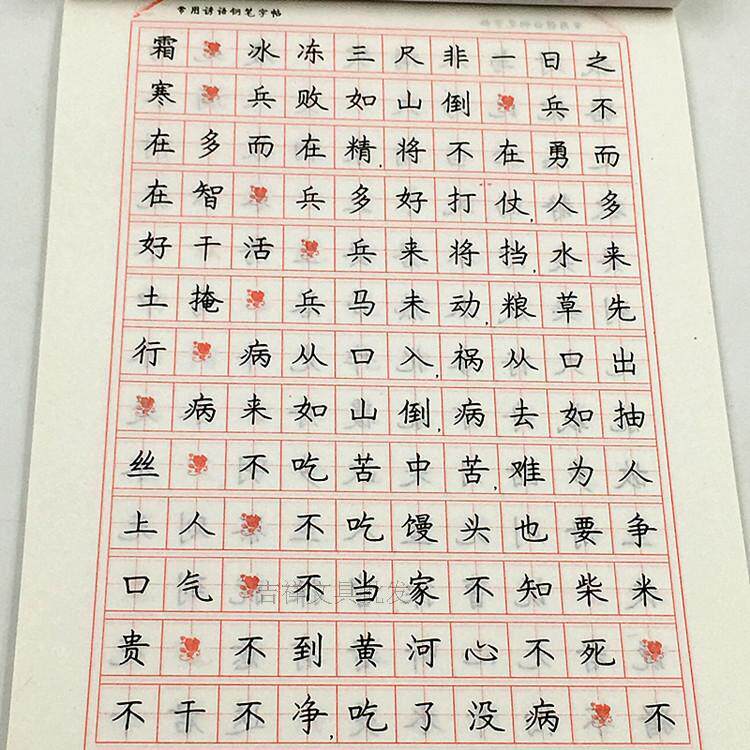 常用谚语钢笔字帖
霜 冰冻三尺非一日之
寒 兵败如山倒 兵不
在多而在精,将不在勇而
在智 兵多好打仗,人多
好干活 兵来将挡,水来
土掩 兵马未动,粮草先
行 病从口入,祸从口出
病来如山倒,病去如抽
丝 不吃苦中苦,难为人
上人 不吃馒头也要争
口气 不当家不知柴米
贵 不到黄河心不死
不干不净,吃了没病 不
吉祥文具批发